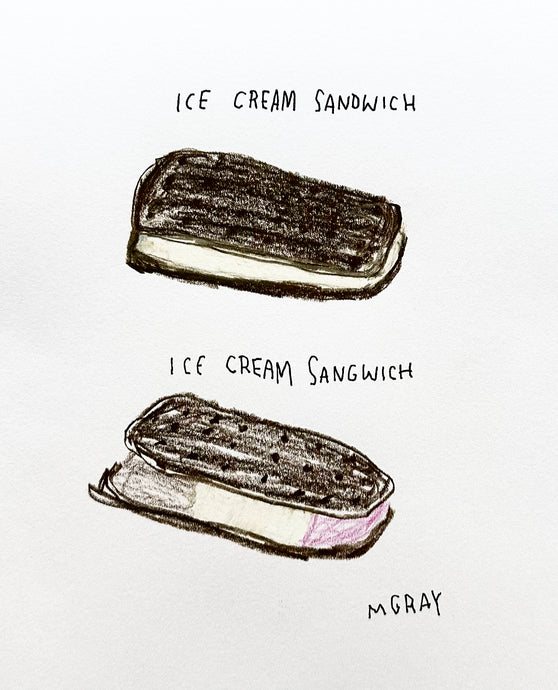 ICE CREAM SANDWICH
ICE CREAM SANGWICH
MGRAY